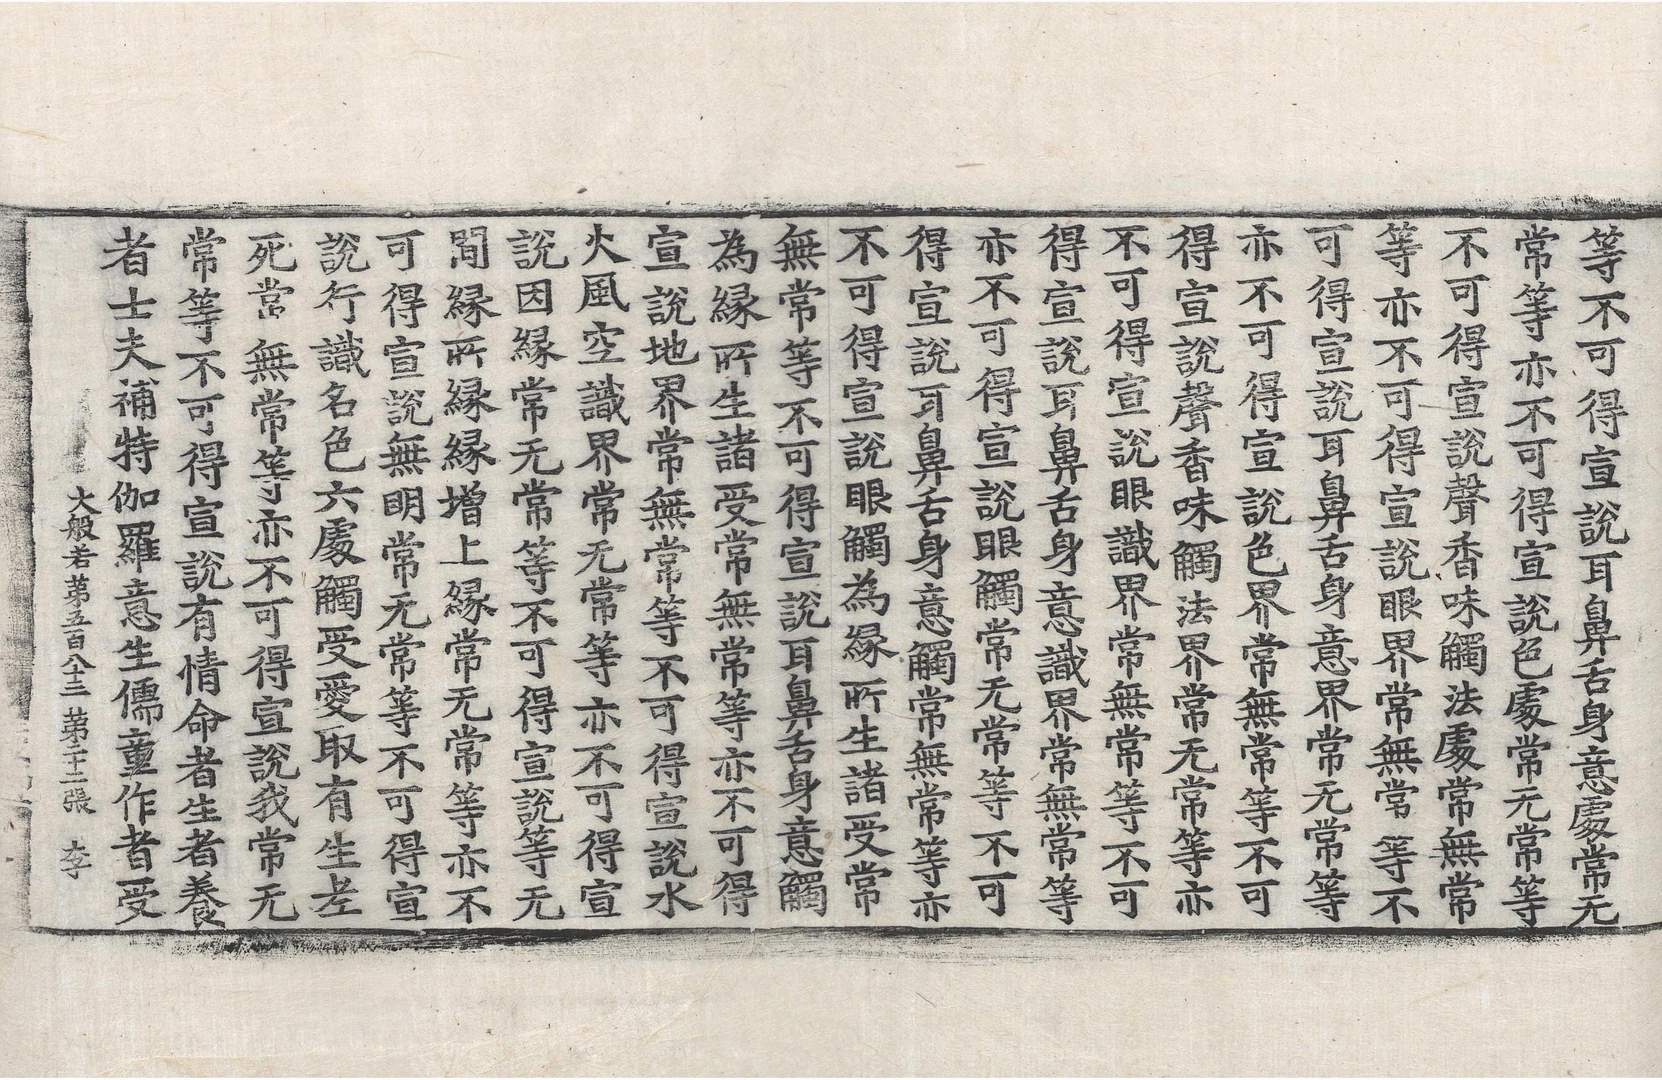 等不可得宣說耳鼻舌身意處常无
常等亦不可得宣說色處常无常等
不可得宣說聲香味觸法處常無常
等亦不可得宣說眼界常無常等不
可得宣說耳鼻舌身意界常无常等
亦不可得宣說色界常無常等不可
得宣說聲香味觸法界常无常等亦
不可得宣說眼識界常無常等不可
得宣說耳鼻舌身意識界常無常等
亦不可得宣說眼觸常无常等不可
得宣說耳鼻舌身意觸常無常等亦
不可得宣說眼觸為縁所生諸受常
無常等不可得宣說耳鼻舌身意觸
為縁所生諸受常無常等亦不可得
宣說地界常無常等不可得宣說水
火風空識界常无常等亦不可得宣
說因縁常无常等不可得宣說等无
間縁所縁縁增上縁常无常等亦不
可得宣說無明常无常等不可得宣
說行識名色六處觸受愛取有生老
死常無常等亦不可得宣說我常无
常等不可得宣說有情命者生者養
者士夫補特伽羅意生儒童作者受
大般若第五百八十三 第二十二張 李